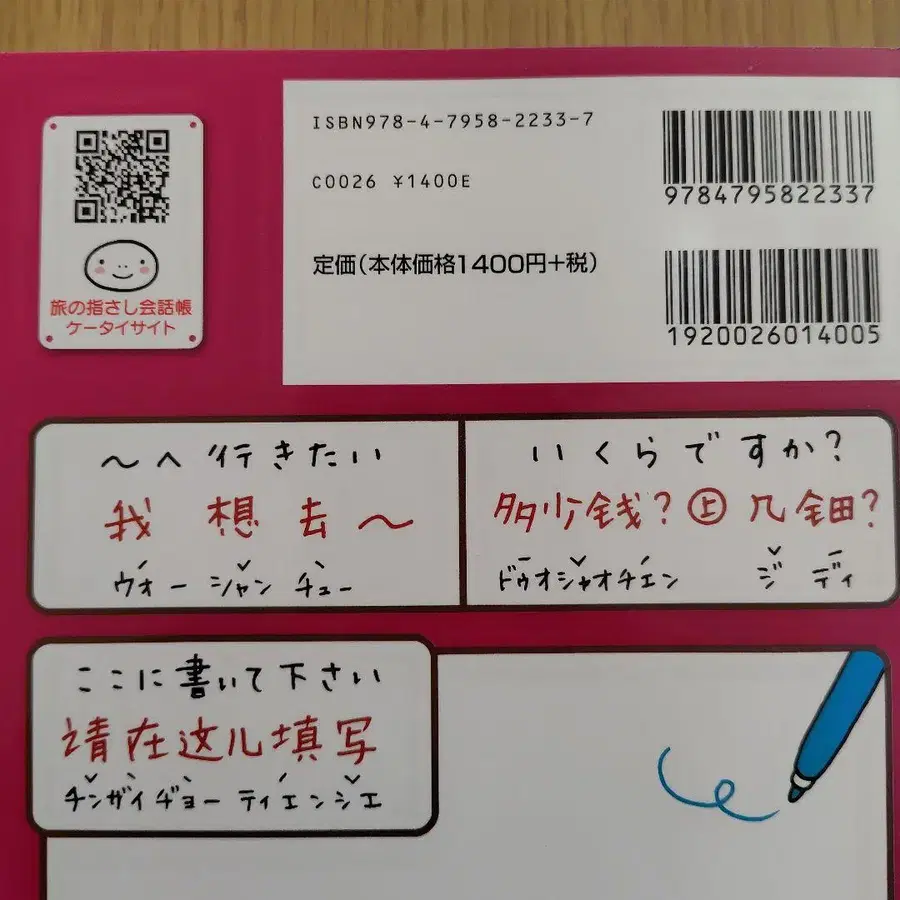 ISBN978-4-7958-2233-7
C0026 ¥1400E
定価(本体価格1400円+税)
9784795822337
1920026014005
旅の指さし会話帳
ケータイサイト
〜へ行きたい
我想去〜
ウォーシャンチュー
いくらですか?
多少钱?㊤几钿?
ドゥオシャオチエン ジディ
ここに書いて下さい
请在这儿填写
チンザイヂョーティエンシエ